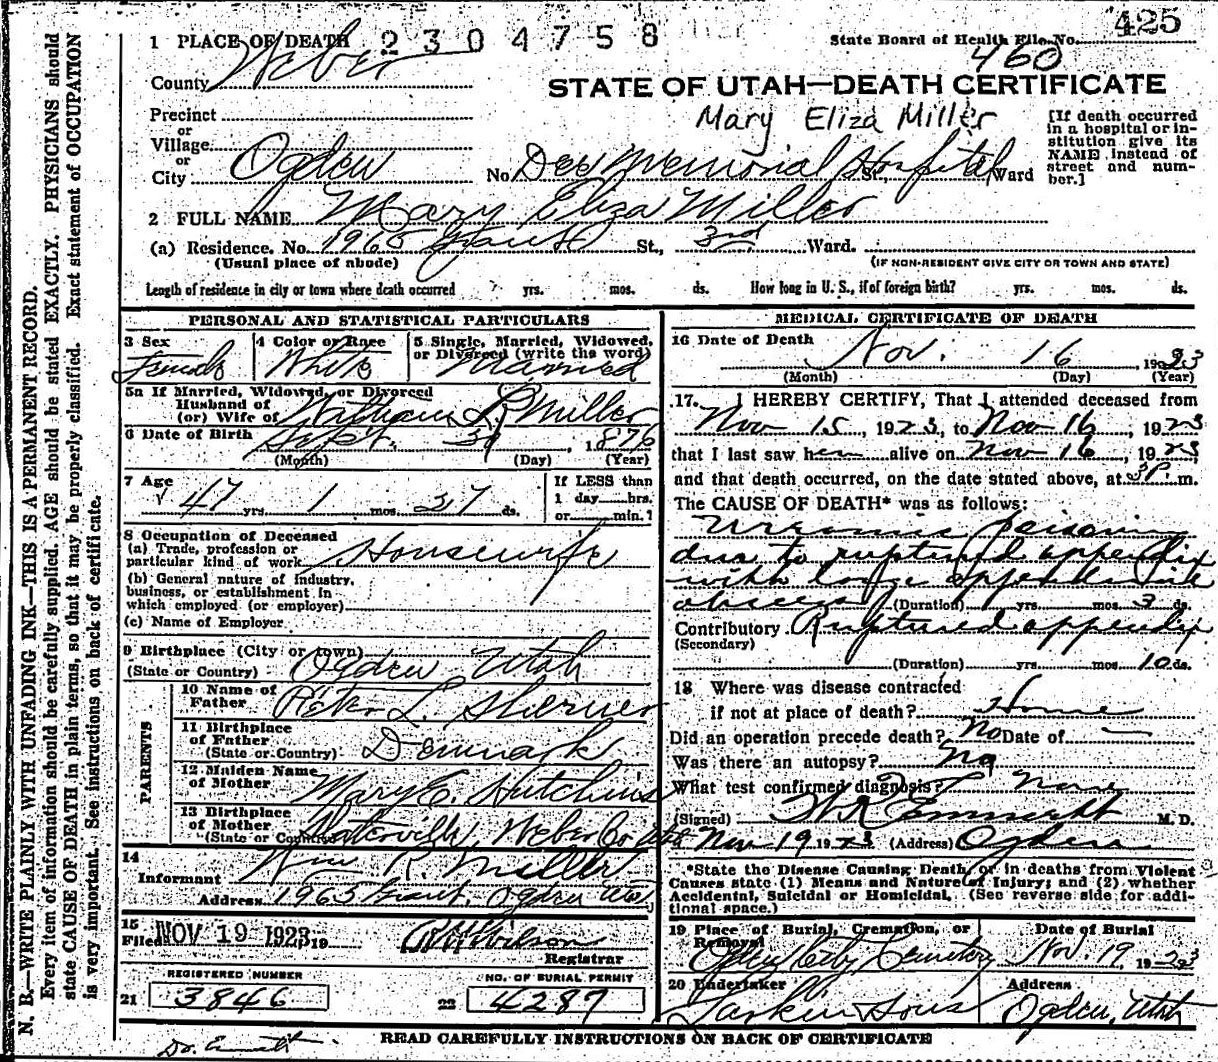 N. B.—WRITE PLAINLY WITH UNFADING INK—THIS IS A PERMANENT RECORD.
Every item of information should be carefully supplied. AGE should be stated EXACTLY. PHYSICIANS should
state CAUSE OF DEATH in plain terms, so that it may be properly classified. Exact statement of OCCUPATION
is very important. See instructions on back of certificate.
425
1 PLACE OF DEATH 2304758
State Board of Health File No. 460
County Weber
STATE OF UTAH—DEATH CERTIFICATE
Mary Eliza Miller
Precinct
or
Village
or
City Ogden No. Dee Memorial Hospital St., Ward
[If death occurred
in a hospital or in-
stitution give its
NAME instead of
street and num-
ber.]
2 FULL NAME Mary Eliza Miller
(a) Residence. No. 1965 Grant St., 3rd Ward.
(Usual place of abode) (IF NON-RESIDENT GIVE CITY OR TOWN AND STATE)
Length of residence in city or town where death occurred yrs. mos. ds. How long in U. S., if of foreign birth? yrs. mos. ds.
PERSONAL AND STATISTICAL PARTICULARS
3 Sex Female
4 Color or Race White
5 Single, Married, Widowed,
or Divorced (write the word)
Married
5a If Married, Widowed, or Divorced
Husband of
(or) Wife of William R Miller
6 Date of Birth Sept. , 1876
(Month) (Day) (Year)
7 Age 47 yrs. 1 mos. ds.
If LESS than
1 day hrs.
or min.?
8 Occupation of Deceased
(a) Trade, profession or
particular kind of work Housewife
(b) General nature of Industry,
business, or establishment in
which employed (or employer)
(c) Name of Employer
9 Birthplace (City or town)
(State or Country) Ogden Utah
PARENTS
10 Name of
Father Peter L. Sherner
11 Birthplace
of Father
(State or Country) Denmark
12 Maiden Name
of Mother Mary E. Hutchins
13 Birthplace
of Mother
(State or Country) Slaterville, Weber Co Utah
14
Informant Wm R. Miller
Address 1965 Grant, Ogden Utah
15
Filed NOV 19 1923 19
Registrar
REGISTERED NUMBER
21 3846
NO. OF BURIAL PERMIT
22 4287
MEDICAL CERTIFICATE OF DEATH
16 Date of Death Nov. 16 1923
(Month) (Day) (Year)
17. I HEREBY CERTIFY, That I attended deceased from
Nov 15, 1923, to Nov 16, 1923
that I last saw her alive on Nov 16, 1923,
and that death occurred, on the date stated above, at 3 P. m.
The CAUSE OF DEATH* was as follows:
Uraemic poisoning
due to ruptured appendix
with large
abscess (Duration) yrs. mos. 3 ds.
Contributory Ruptured appendix
(Secondary)
(Duration) yrs. mos. 10 ds.
18 Where was disease contracted
if not at place of death? Home
Did an operation precede death? No Date of —
Was there an autopsy? No
What test confirmed diagnosis? None
(Signed) Emmett M. D.
Nov 19 1923 (Address) Ogden
*State the Disease Causing Death, or in deaths from Violent
Causes state (1) Means and Nature of Injury; and (2) whether
Accidental, Suicidal or Homicidal. (See reverse side for addi-
tional space.)
19 Place of Burial, Cremation, or
Removal
Ogden City Cemetery
Date of Burial
Nov. 19 1923
20 Undertaker
Larkin & Sons
Address
Ogden, Utah
READ CAREFULLY INSTRUCTIONS ON BACK OF CERTIFICATE
Dr. Emmett